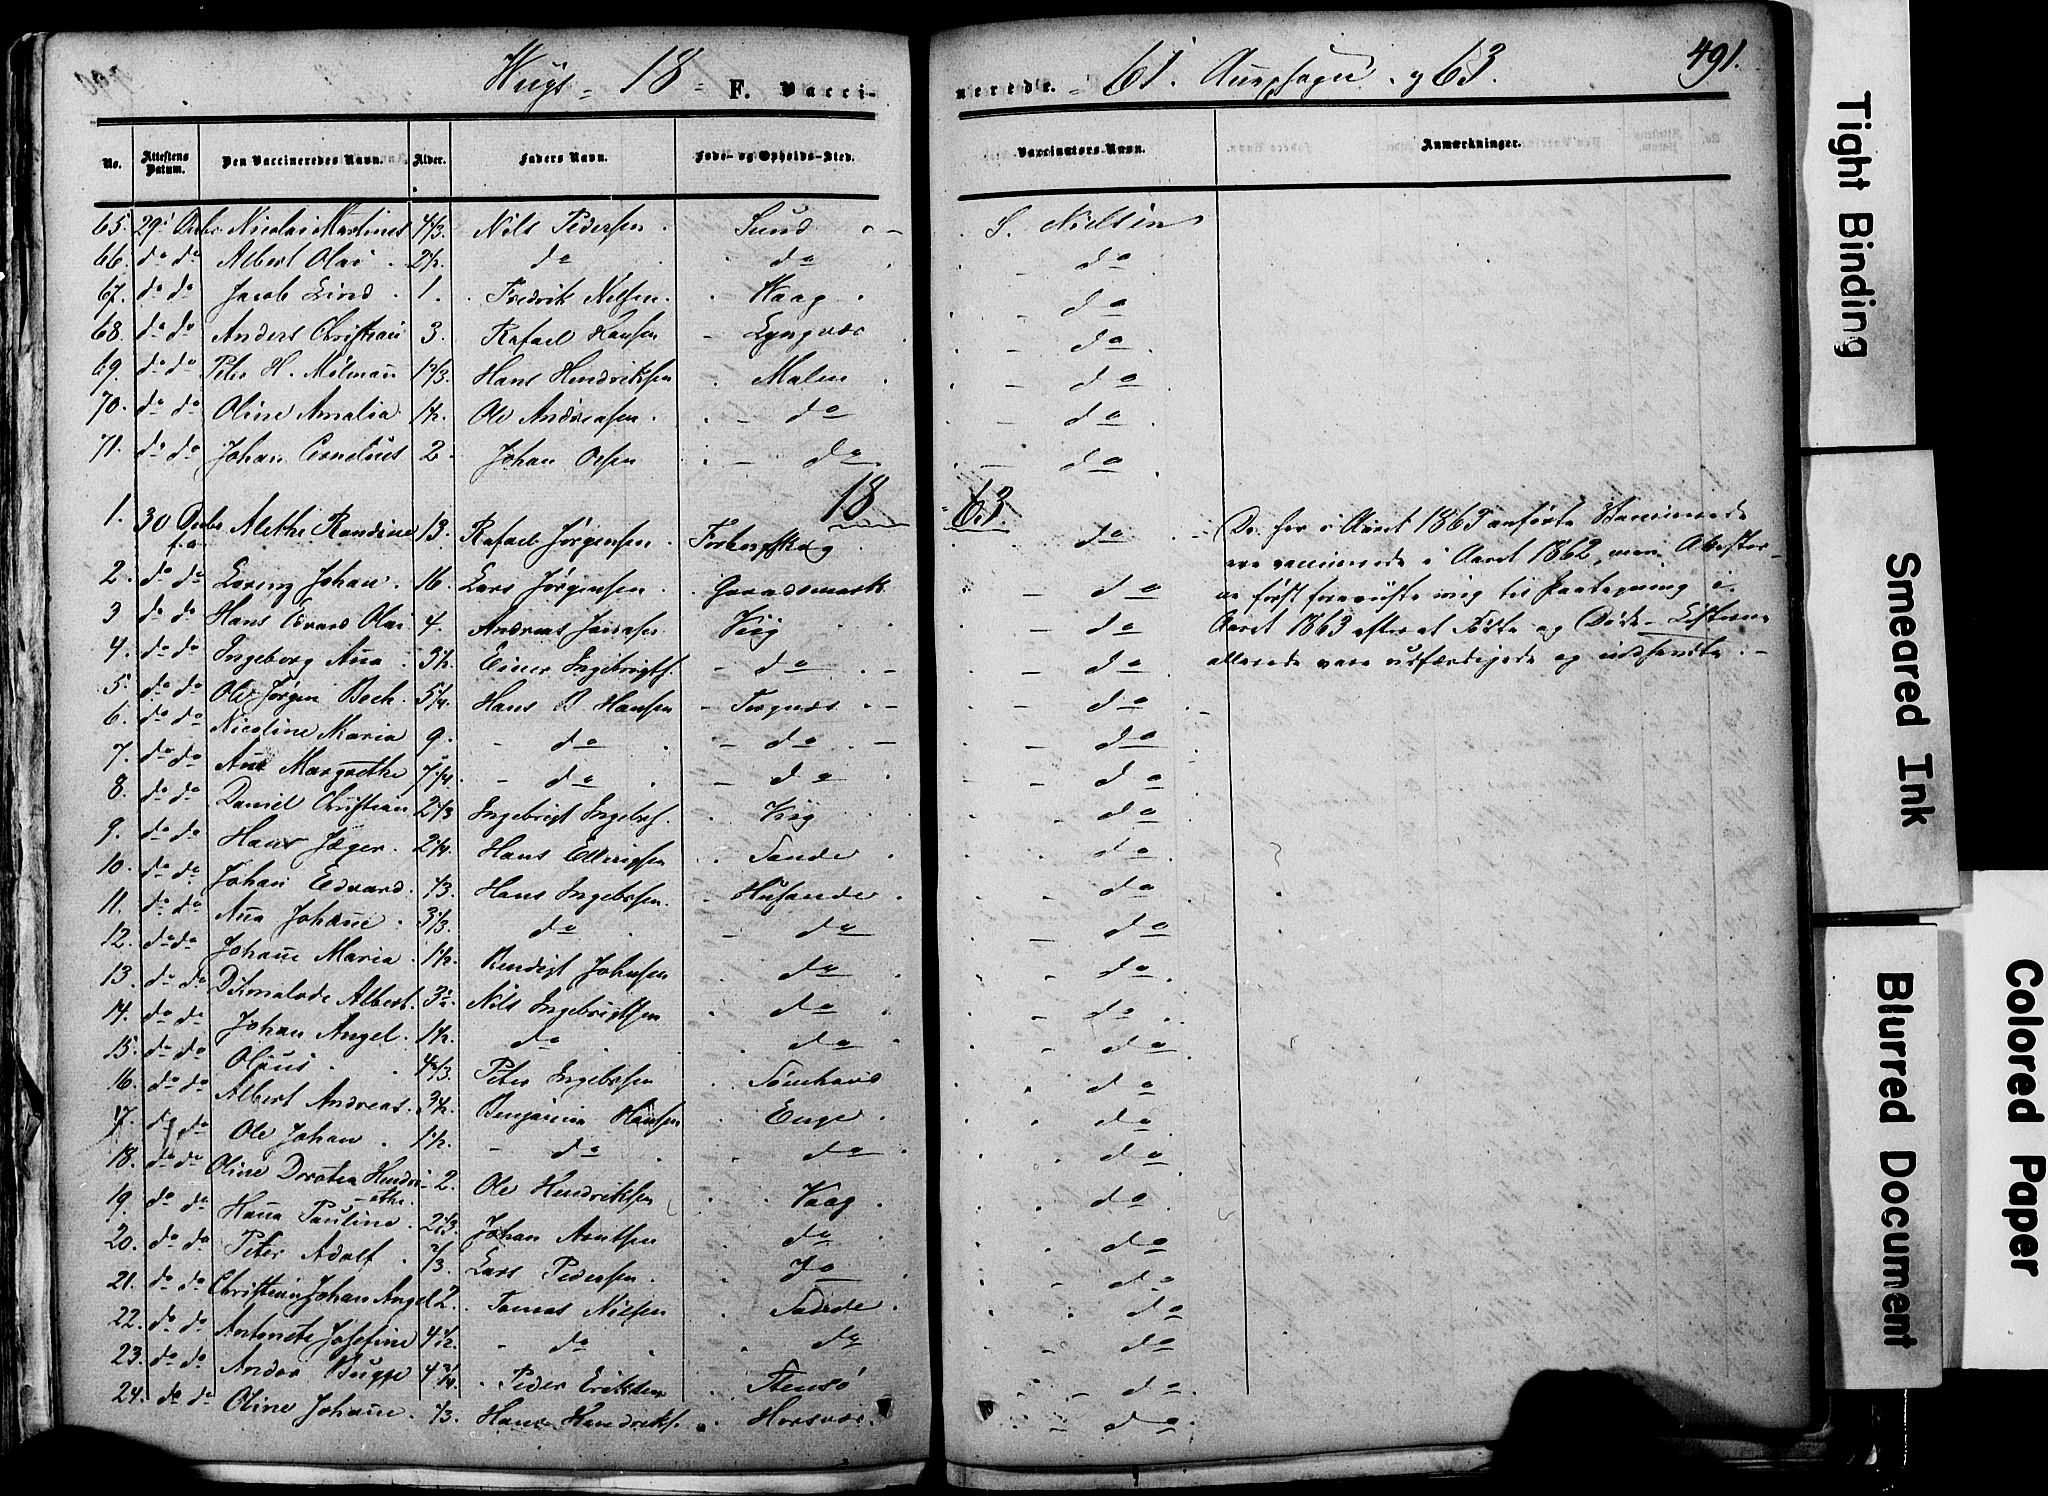 491.
Waags - 18 - F. Vacci-
nerede. 61. Annexsogn. og 63.
No. Attestens Datum. Den Vaccineredes Navn. Alder. Faders Navn. Føde- og Opholds-Sted. Vaccinators Navn. Anmærkninger.
65. 29 Decbr Nicolai Martines 4/3. Nils Pedersen Sund S. Nielsen
66. do do Albert Olai 2½. do do do
67. do do Jacob Lind 1. Fredrik Nilsen Waag do
68. do do Anders Christian 3. Rafael Hansen Lyngvær do
69. do do Peter H. Mølman 1⅔. Hans Hendriksen Malen do
70. do do Oline Amalia 1½. Ole Andreasen do do
71. do do Johan Cornelius 2 Johan Olsen do do
18 63.
1. 30 Decbr f.a. Alethe Randine 13. Rafael Jørgensen do
2. do do Lorenz Johan 16. Lars Jørgensen Gaardsmark do
3 do do Hans Edvard Olai 4. Andreas do
4. do do Ingeborg Ana 3½. Einer Ingebrigts. do do
5. do do Ole Jørgen Bech 5¼. Hans D Hansen do
6. do do Nicoline Maria 9. do do do
7. do do Ane Margrethe 7¼ do do do
8. do do Daniel Christian 2⅓ Ingebrigt Ingebr. do
9. do do Hans Jæger. 2¼. Hans Sande do
10. do do Johan Edvard ⅓. Hans Ingebrsen Husande do
11. do do Ana Johane 3⅓. do do do
12. do do Johane Maria 1½. Bendigt Johnsen do do
13. do do Albert 3½. Nils Ingebrigtsen do do
14. do do Johan Angel. 1½. do do do
15. do do Olaus Peter Ingebrsen do
16. do do Albert Andreas. 3½. Benjamin Hansen Enge do
17. do do Ole Johan 1½. do do do
18. do do Oline Dorotea Hendri-
ethe 2. Ole Hendriksen Vaag do
19. do do Hana Pauline 2⅔. Johan Arntsen do do
20. do do Peter Adolf ⅓. Lars Pedersen do do
21. do do Christian Johan Angel 2. Tomas Nilsen Sande do
22. do do Antonete Josefine 4½. do do do
23. do do Ander Bugge 4¾. Peder Eriksen Stensø do
24. do do Oline Johane ⅓. Hans Hendriks. Horsvær do
De her i Aaret 1863 anførte Vaccinerede
ere vaccinerede i Aaret 1862, men Attester-
ne først foreviiste mig til Paategning i
Aaret 1863 efterat Fødte og Døde-Listerne
allerede vare udfærdigede og indsendte.
Tight Binding
Smeared Ink
Blurred Document
Colored Paper